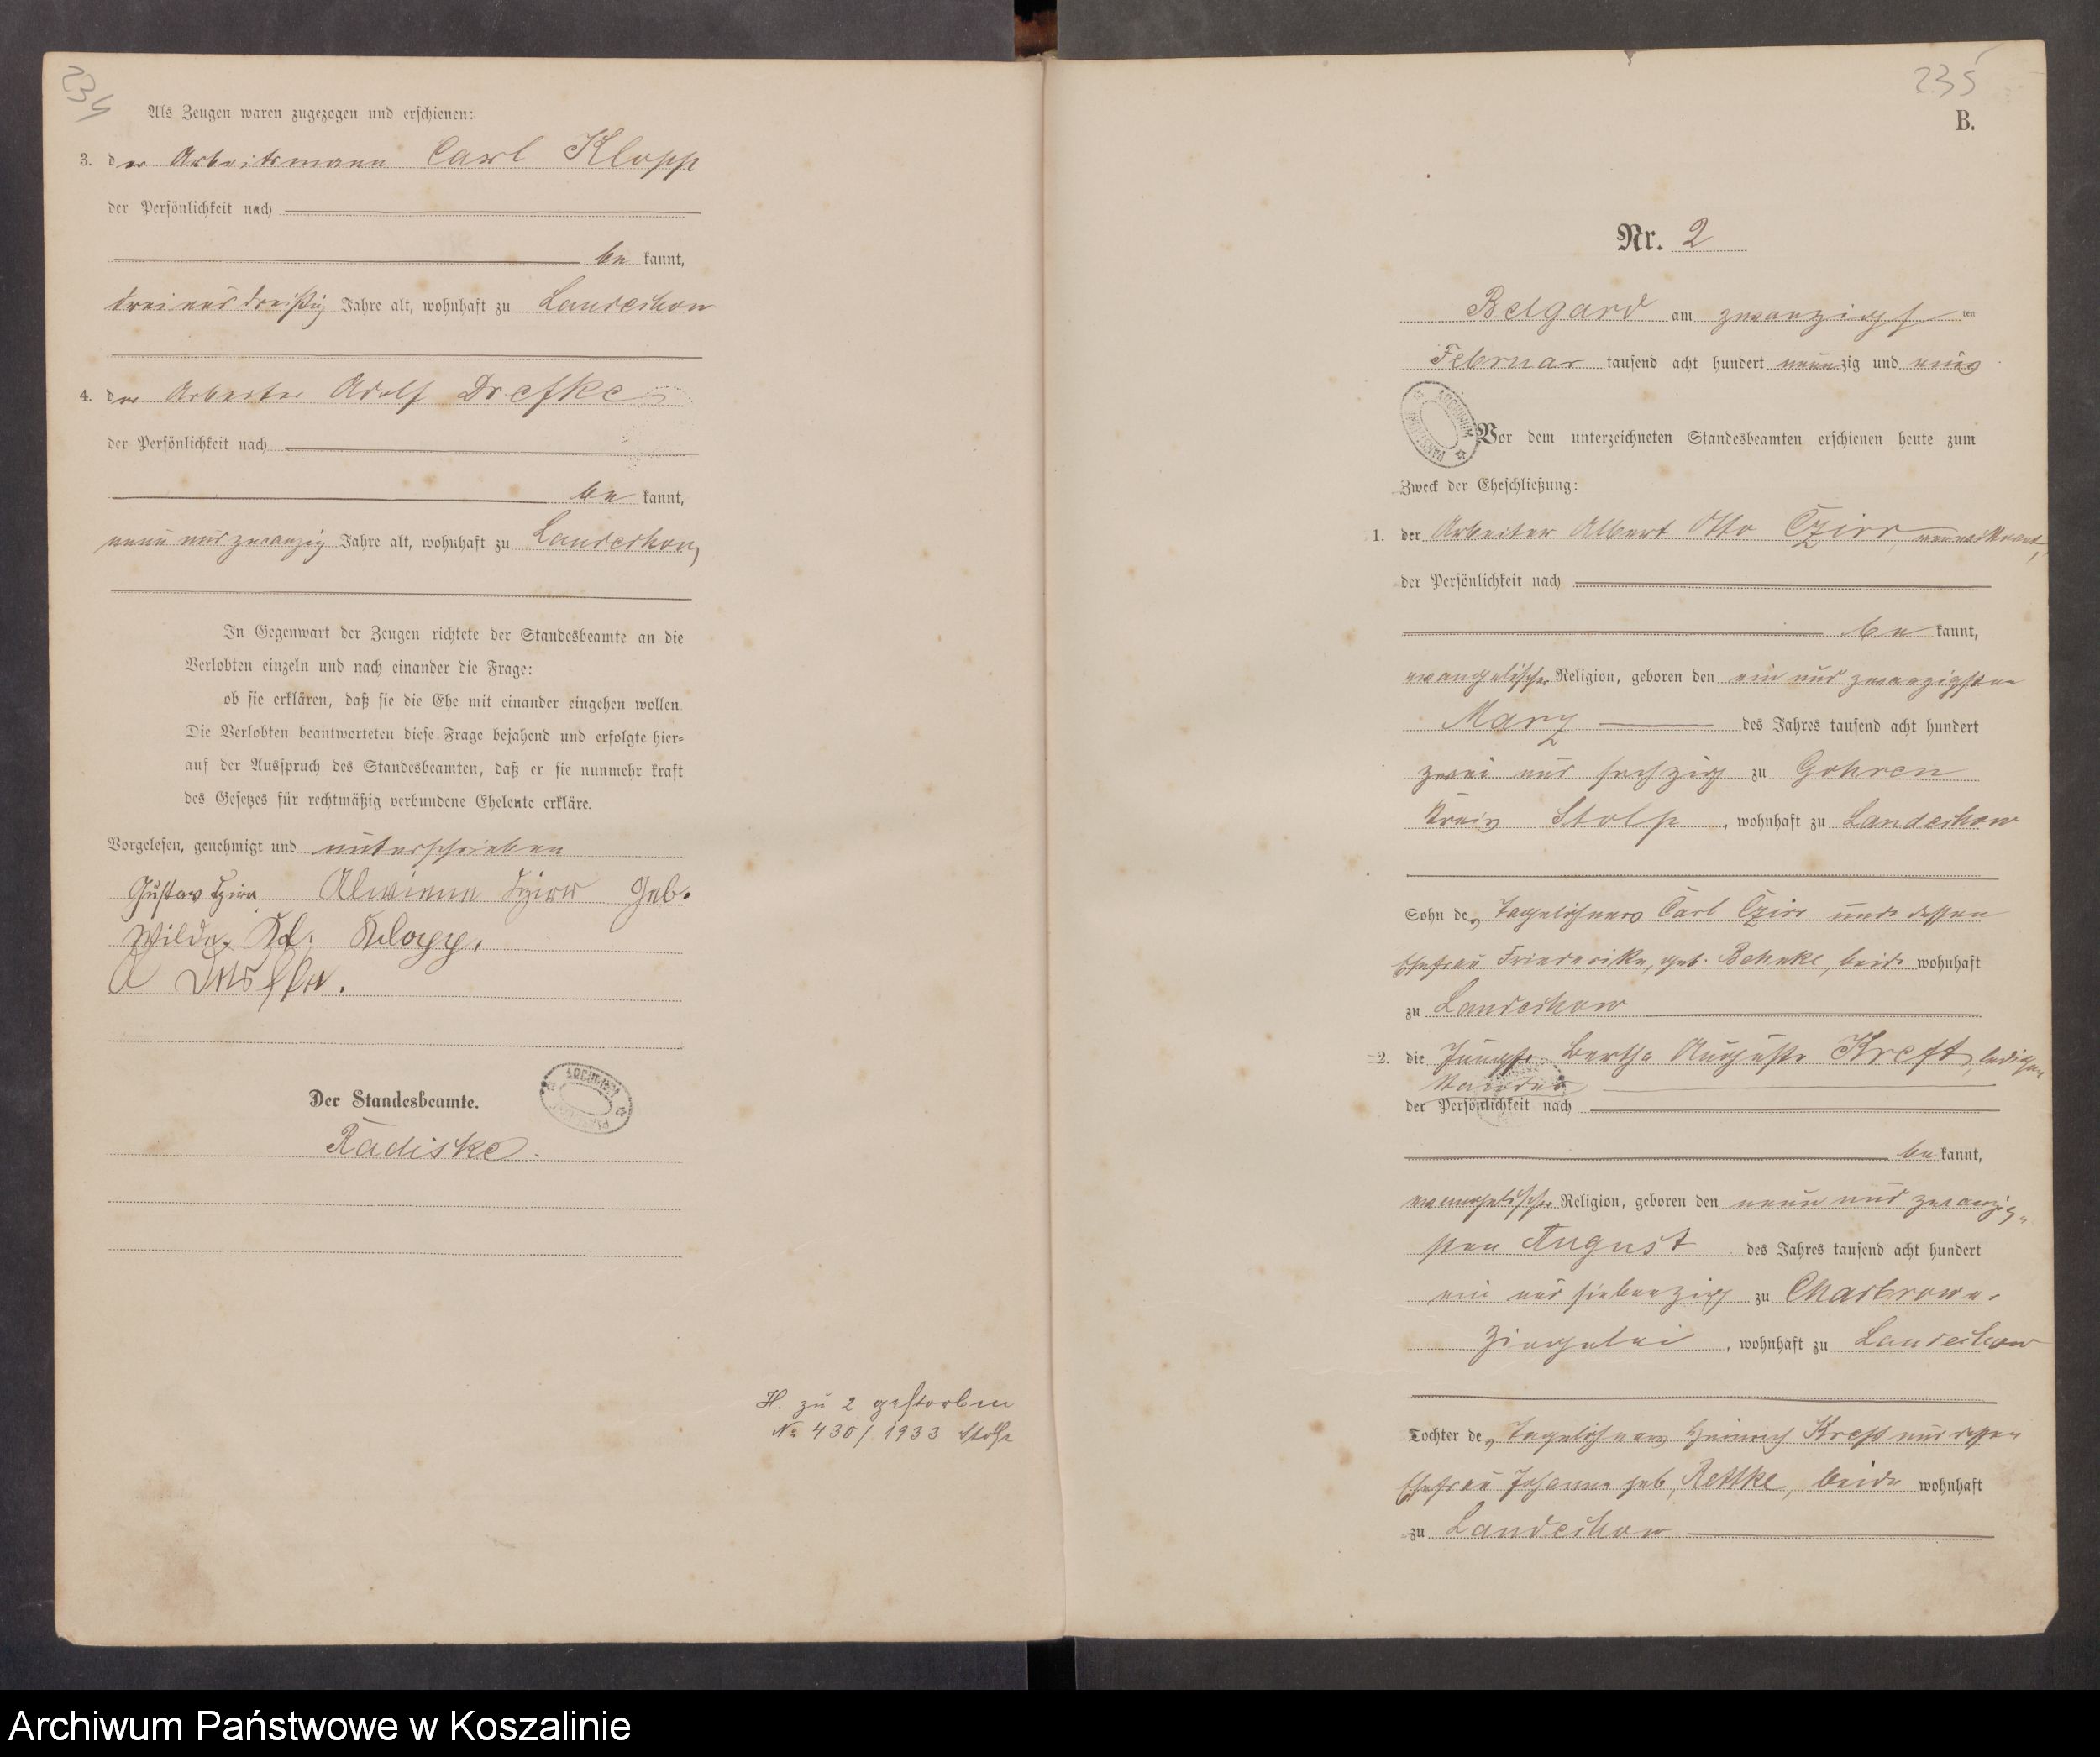 234
Als Zeugen waren zugezogen und erschienen:
3. der Arbeitsmann Carl Klopp
der Persönlichkeit nach
be kannt,
drei und dreißig Jahre alt, wohnhaft zu Landechow
4. der Arbeiter Adolf Drefke
der Persönlichkeit nach
be kannt,
neun und zwanzig Jahre alt, wohnhaft zu Landechow,
In Gegenwart der Zeugen richtete der Standesbeamte an die
Verlobten einzeln und nach einander die Frage:
ob sie erklären, daß sie die Ehe mit einander eingehen wollen.
Die Verlobten beantworteten diese Frage bejahend und erfolgte hier=
auf der Ausspruch des Standesbeamten, daß er sie nunmehr kraft
des Gesetzes für rechtmäßig verbundene Eheleute erkläre.
Vorgelesen, genehmigt und unterschrieben
Gustav Czirr Alwiene Czirr Geb.
Wilde. Klopp.
A Drefke.
Der Standesbeamte.
Radiske.
H. zu 2 gestorben
No 430/1933 Stolp
235
B.
Nr. 2
Belgard am zwanzigst ten
Februar tausend acht hundert neunzig und eins
Vor dem unterzeichneten Standesbeamten erschienen heute zum
Zweck der Eheschließung:
1. der Arbeiter Albert Otto Czirr,
der Persönlichkeit nach
be kannt,
evangelischer Religion, geboren den ein und zwanzigsten
März des Jahres tausend acht hundert
zwei und sechzig zu Gohren
Kreis Stolp, wohnhaft zu Landechow
Sohn des Tagelöhners Carl Czirr und dessen
Ehefrau Friederike, geb. Behnke, beide wohnhaft
zu Landechow
2. die Jungfr. Bertha Auguste Kreft, ledigen
Standes
der Persönlichkeit nach
be kannt,
evangelischer Religion, geboren den neun und zwanzig-
sten August des Jahres tausend acht hundert
ein und siebenzig zu Charbrower
Ziegelei, wohnhaft zu Landechow
Tochter des Tagelöhners Heinrich Kreft und dessen
Ehefrau Johanne geb. Rettke, beide wohnhaft
zu Landechow
Archiwum Państwowe w Koszalinie